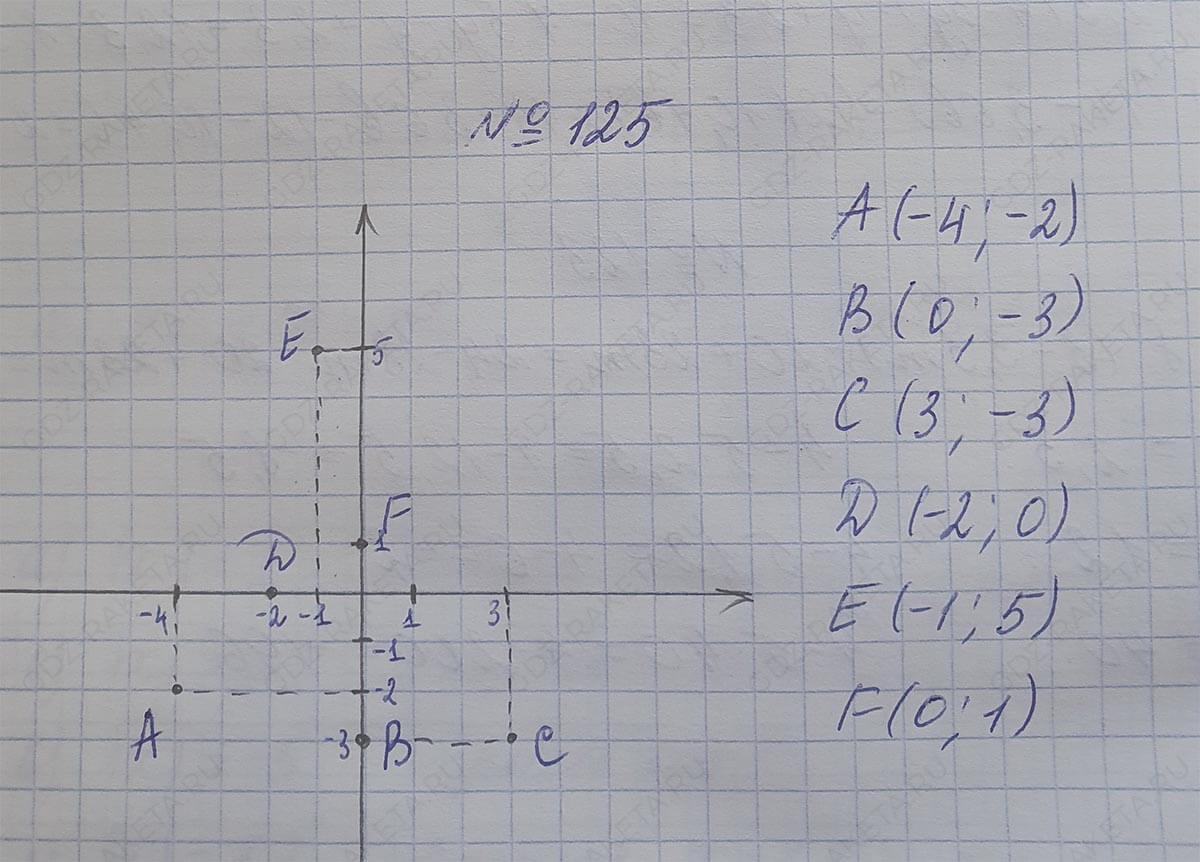 № 125
A (-4; -2)
B (0; -3)
C (3; -3)
D (-2; 0)
E (-1; 5)
F (0; 1)
E 5
F
1
D
-4 -2 -1 1 3
-1
-2
A -3 B C
GDZ-RAKETA.RU